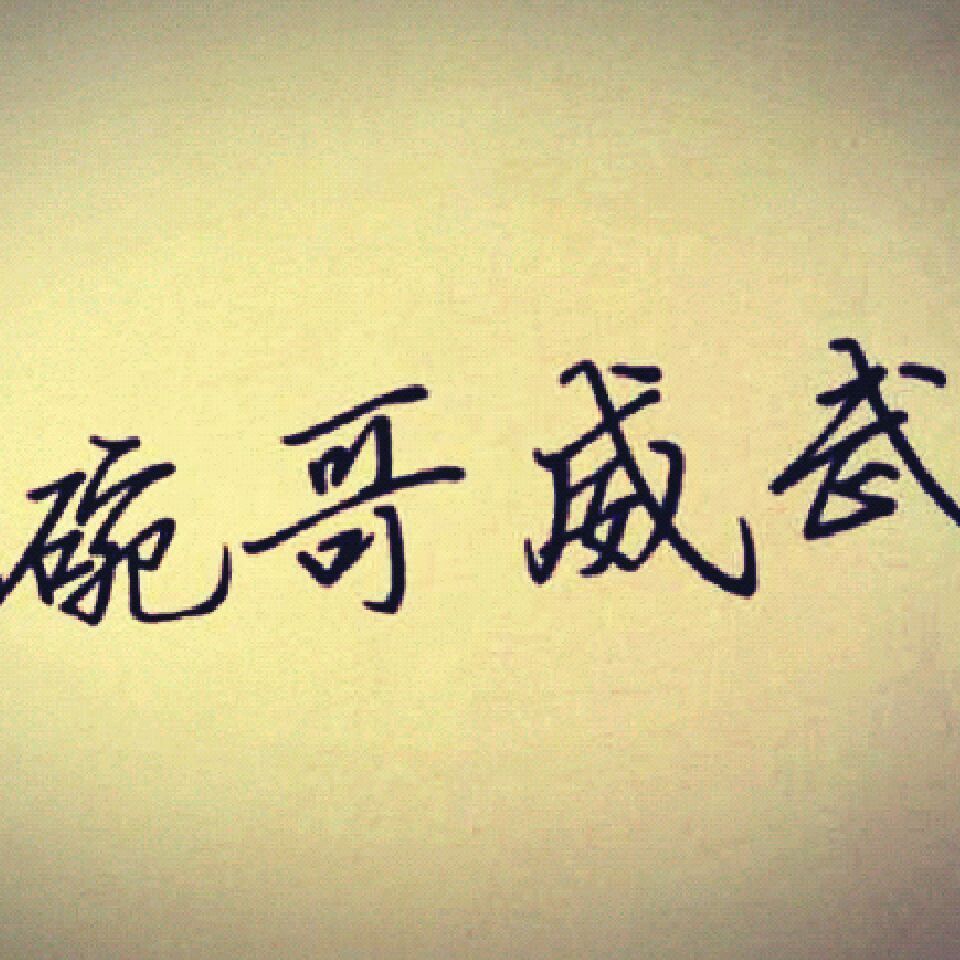 碗哥威武